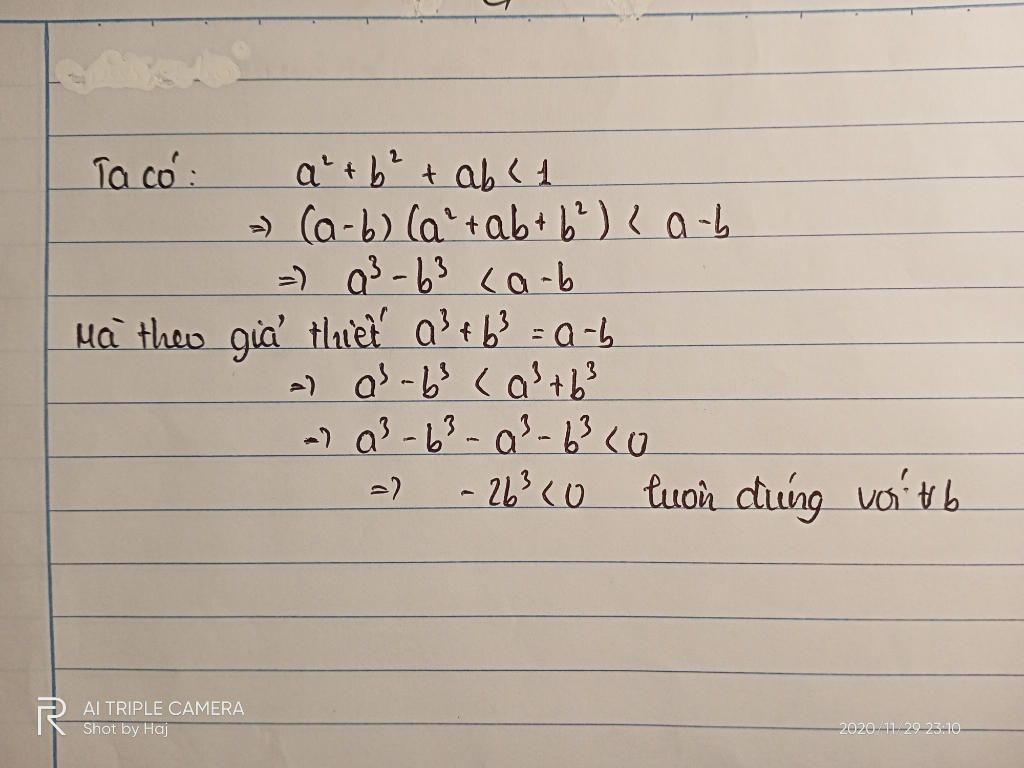 Ta có: a² + b² + ab < 1
=> (a-b) (a² + ab + b²) < a - b
=> a³ - b³ < a - b
Mà theo giả thiết a³ + b³ = a - b
=> a³ - b³ < a³ + b³
=> a³ - b³ - a³ - b³ < 0
=> - 2b³ < 0 luôn đúng với ∀ b
AI TRIPLE CAMERA
Shot by Haj
2020/11/29 23:10